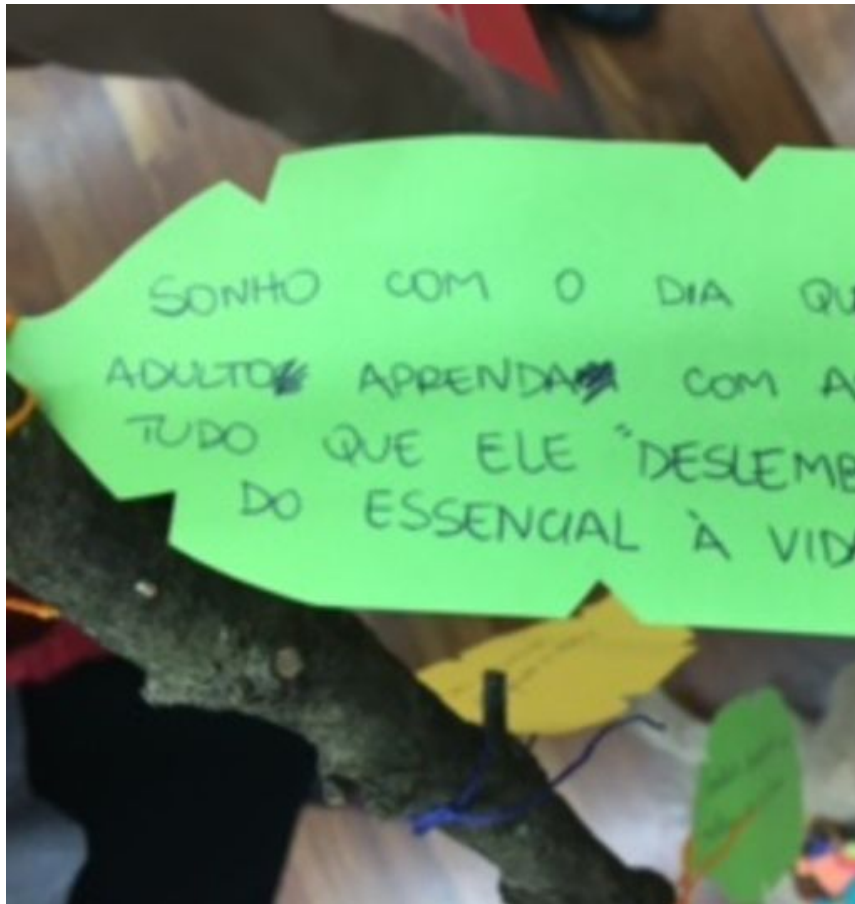 SONHO COM O DIA QU
ADULTO APRENDA COM A
TUDO QUE ELE "DESLEMB
DO ESSENCIAL À VIDA